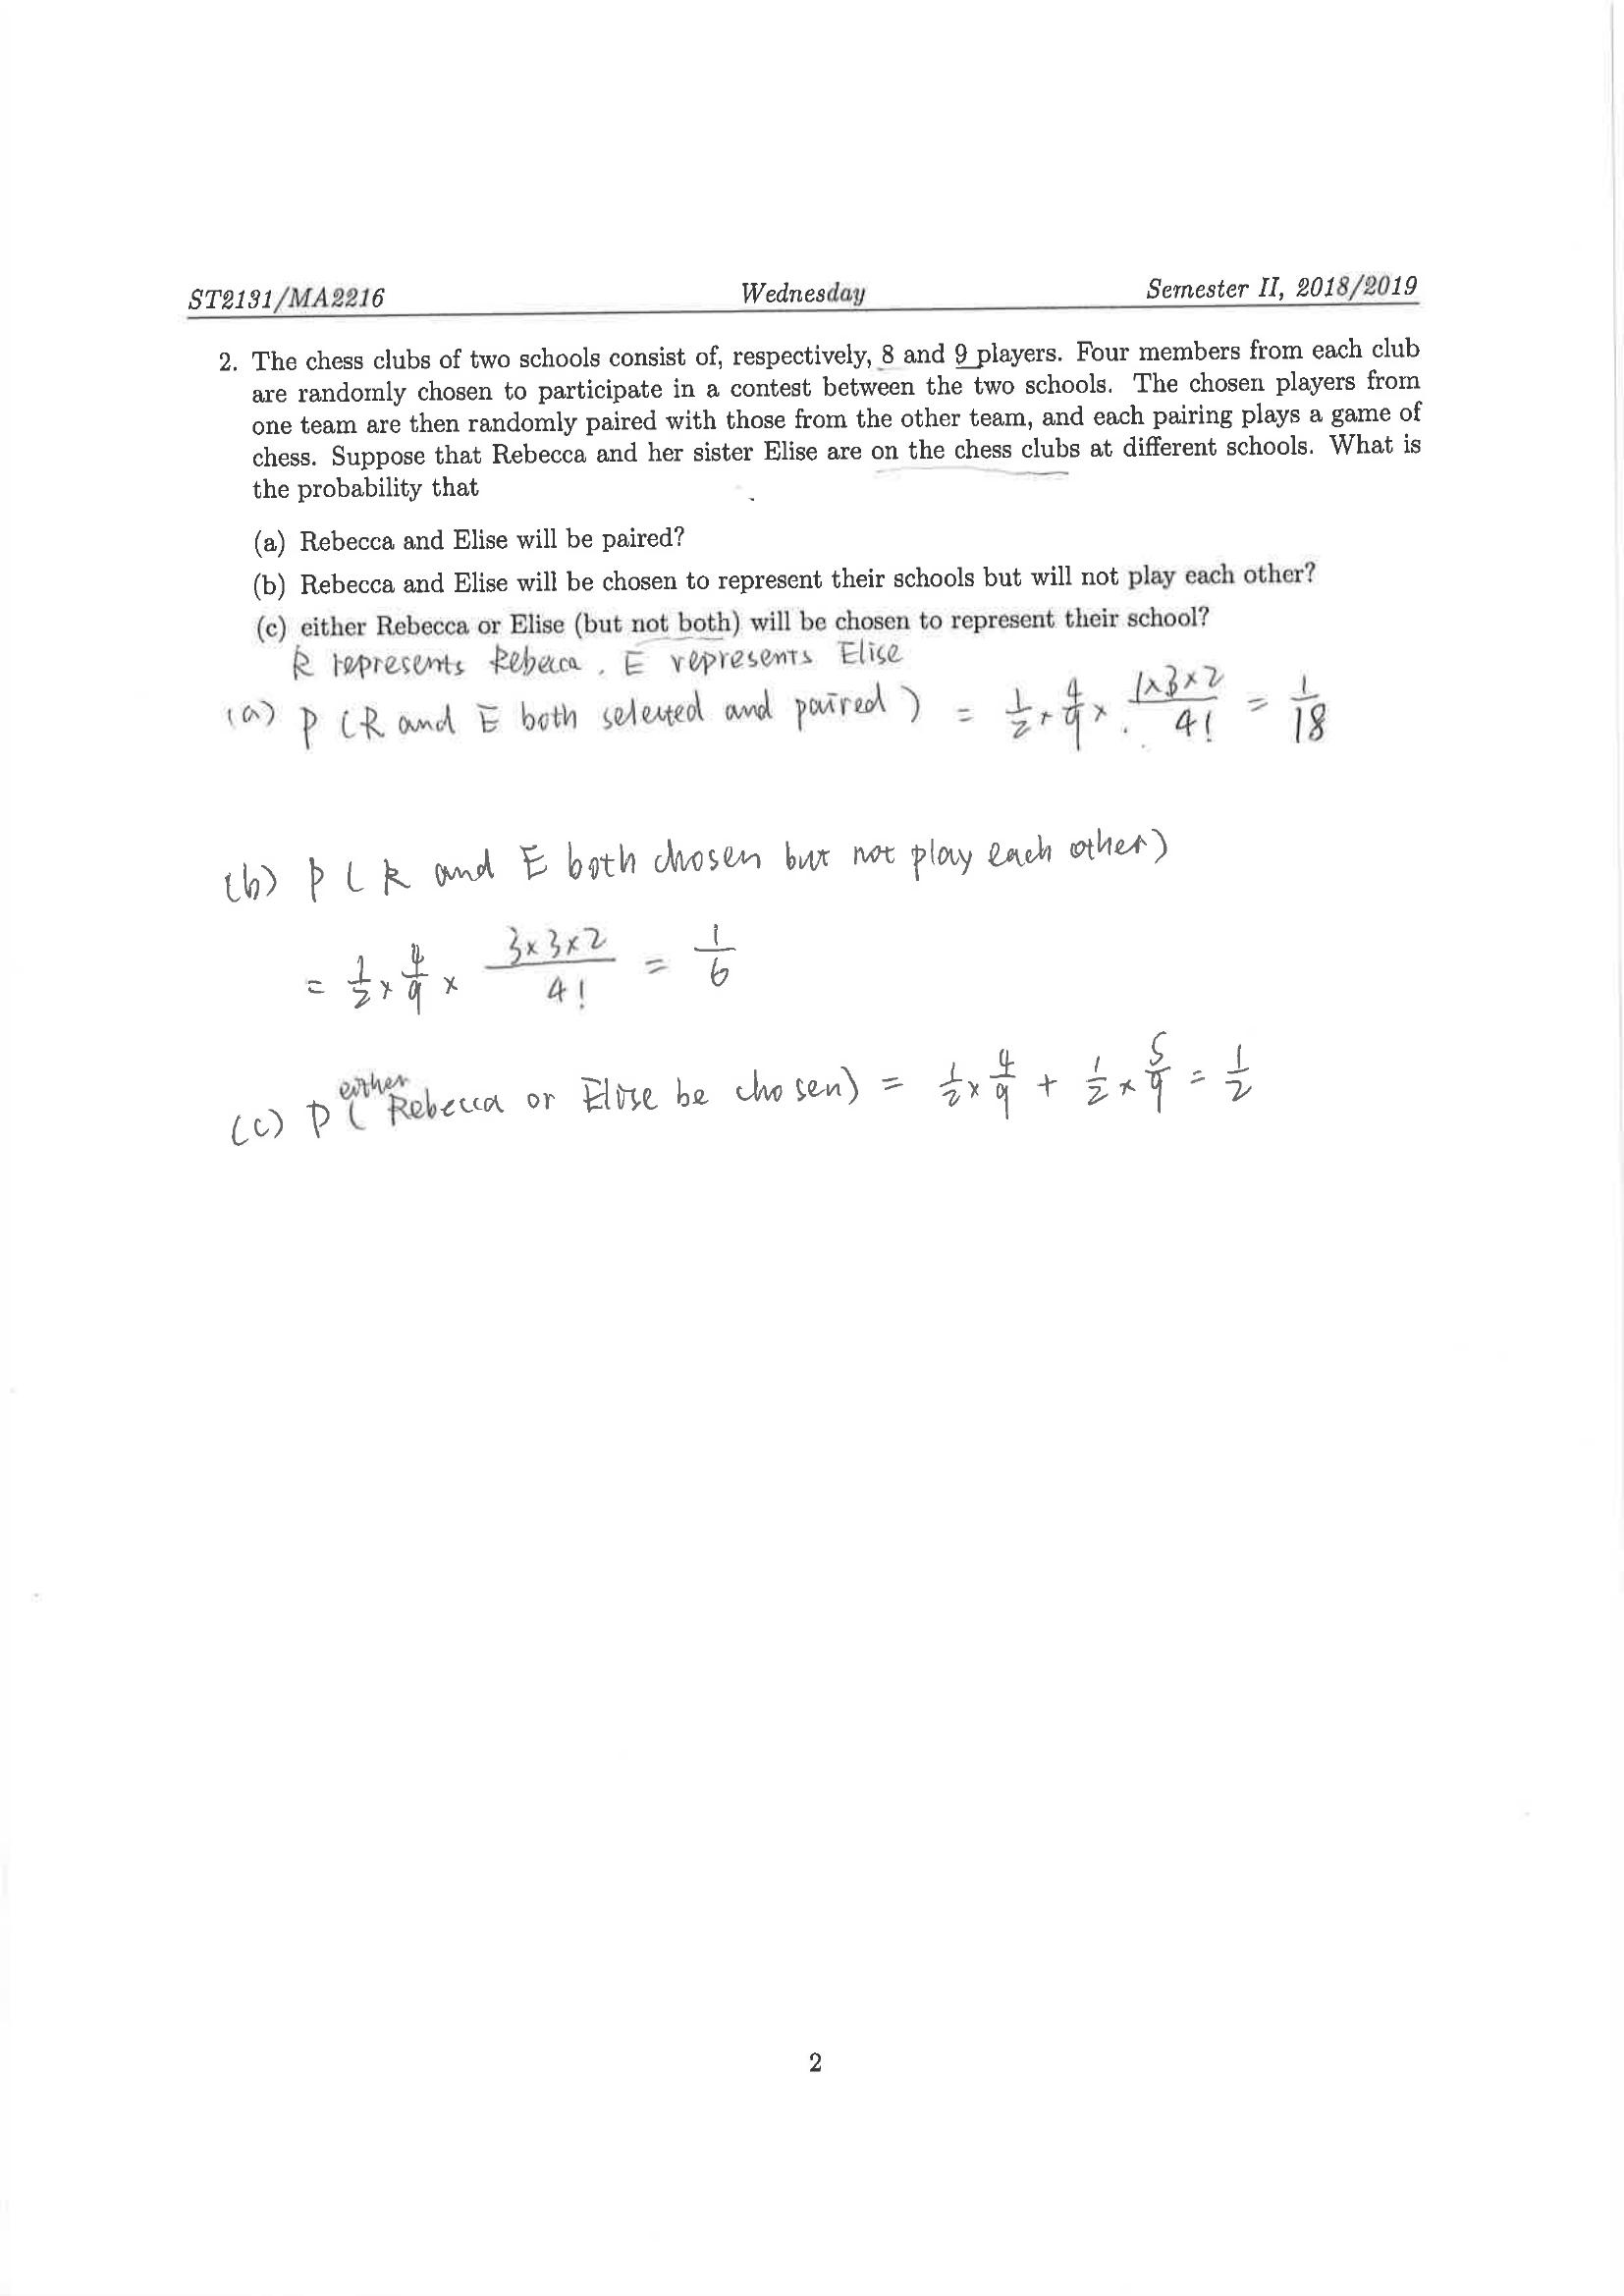 ST2131/MA2216 Wednesday Semester II, 2018/2019
2. The chess clubs of two schools consist of, respectively, 8 and 9 players. Four members from each club
are randomly chosen to participate in a contest between the two schools. The chosen players from
one team are then randomly paired with those from the other team, and each pairing plays a game of
chess. Suppose that Rebecca and her sister Elise are on the chess clubs at different schools. What is
the probability that
(a) Rebecca and Elise will be paired?
(b) Rebecca and Elise will be chosen to represent their schools but will not play each other?
(c) either Rebecca or Elise (but not both) will be chosen to represent their school?
R represents Rebecca, E represents Elise
(a) P (R and E both selected and paired) = 1/2 × 4/9 × (1×3×2)/4! = 1/18
(b) P (R and E both chosen but not play each other)
= 1/2 × 4/9 × (3×3×2)/4! = 1/6
(c) P (either Rebecca or Elise be chosen) = 1/2 × 4/9 + 1/2 × 5/9 = 1/2
2